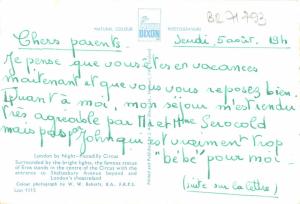 NATURAL COLOUR DIXON PHOTOGRAPHERS
BE 71 793
Chers parents. Jeudi, 5 août. 19h
Je pense que vous êtes en vacances
maintenant et que vous vous reposez bien.
Quant à moi, mon séjour m'est rendu
très agréable par Mr et Mme Serocold
mais pas John qui est vraiment trop
"bébé" pour moi.
(suite sur la lettre)
London by Night—Piccadilly Circus
Surrounded by the bright lights, the famous statue
of Eros stands in the centre of the Circus with the
entrance to Shaftesbury Avenue beyond and
London's theatreland
Colour photograph by W. W. Roberts, R.A. F.R.P.S.